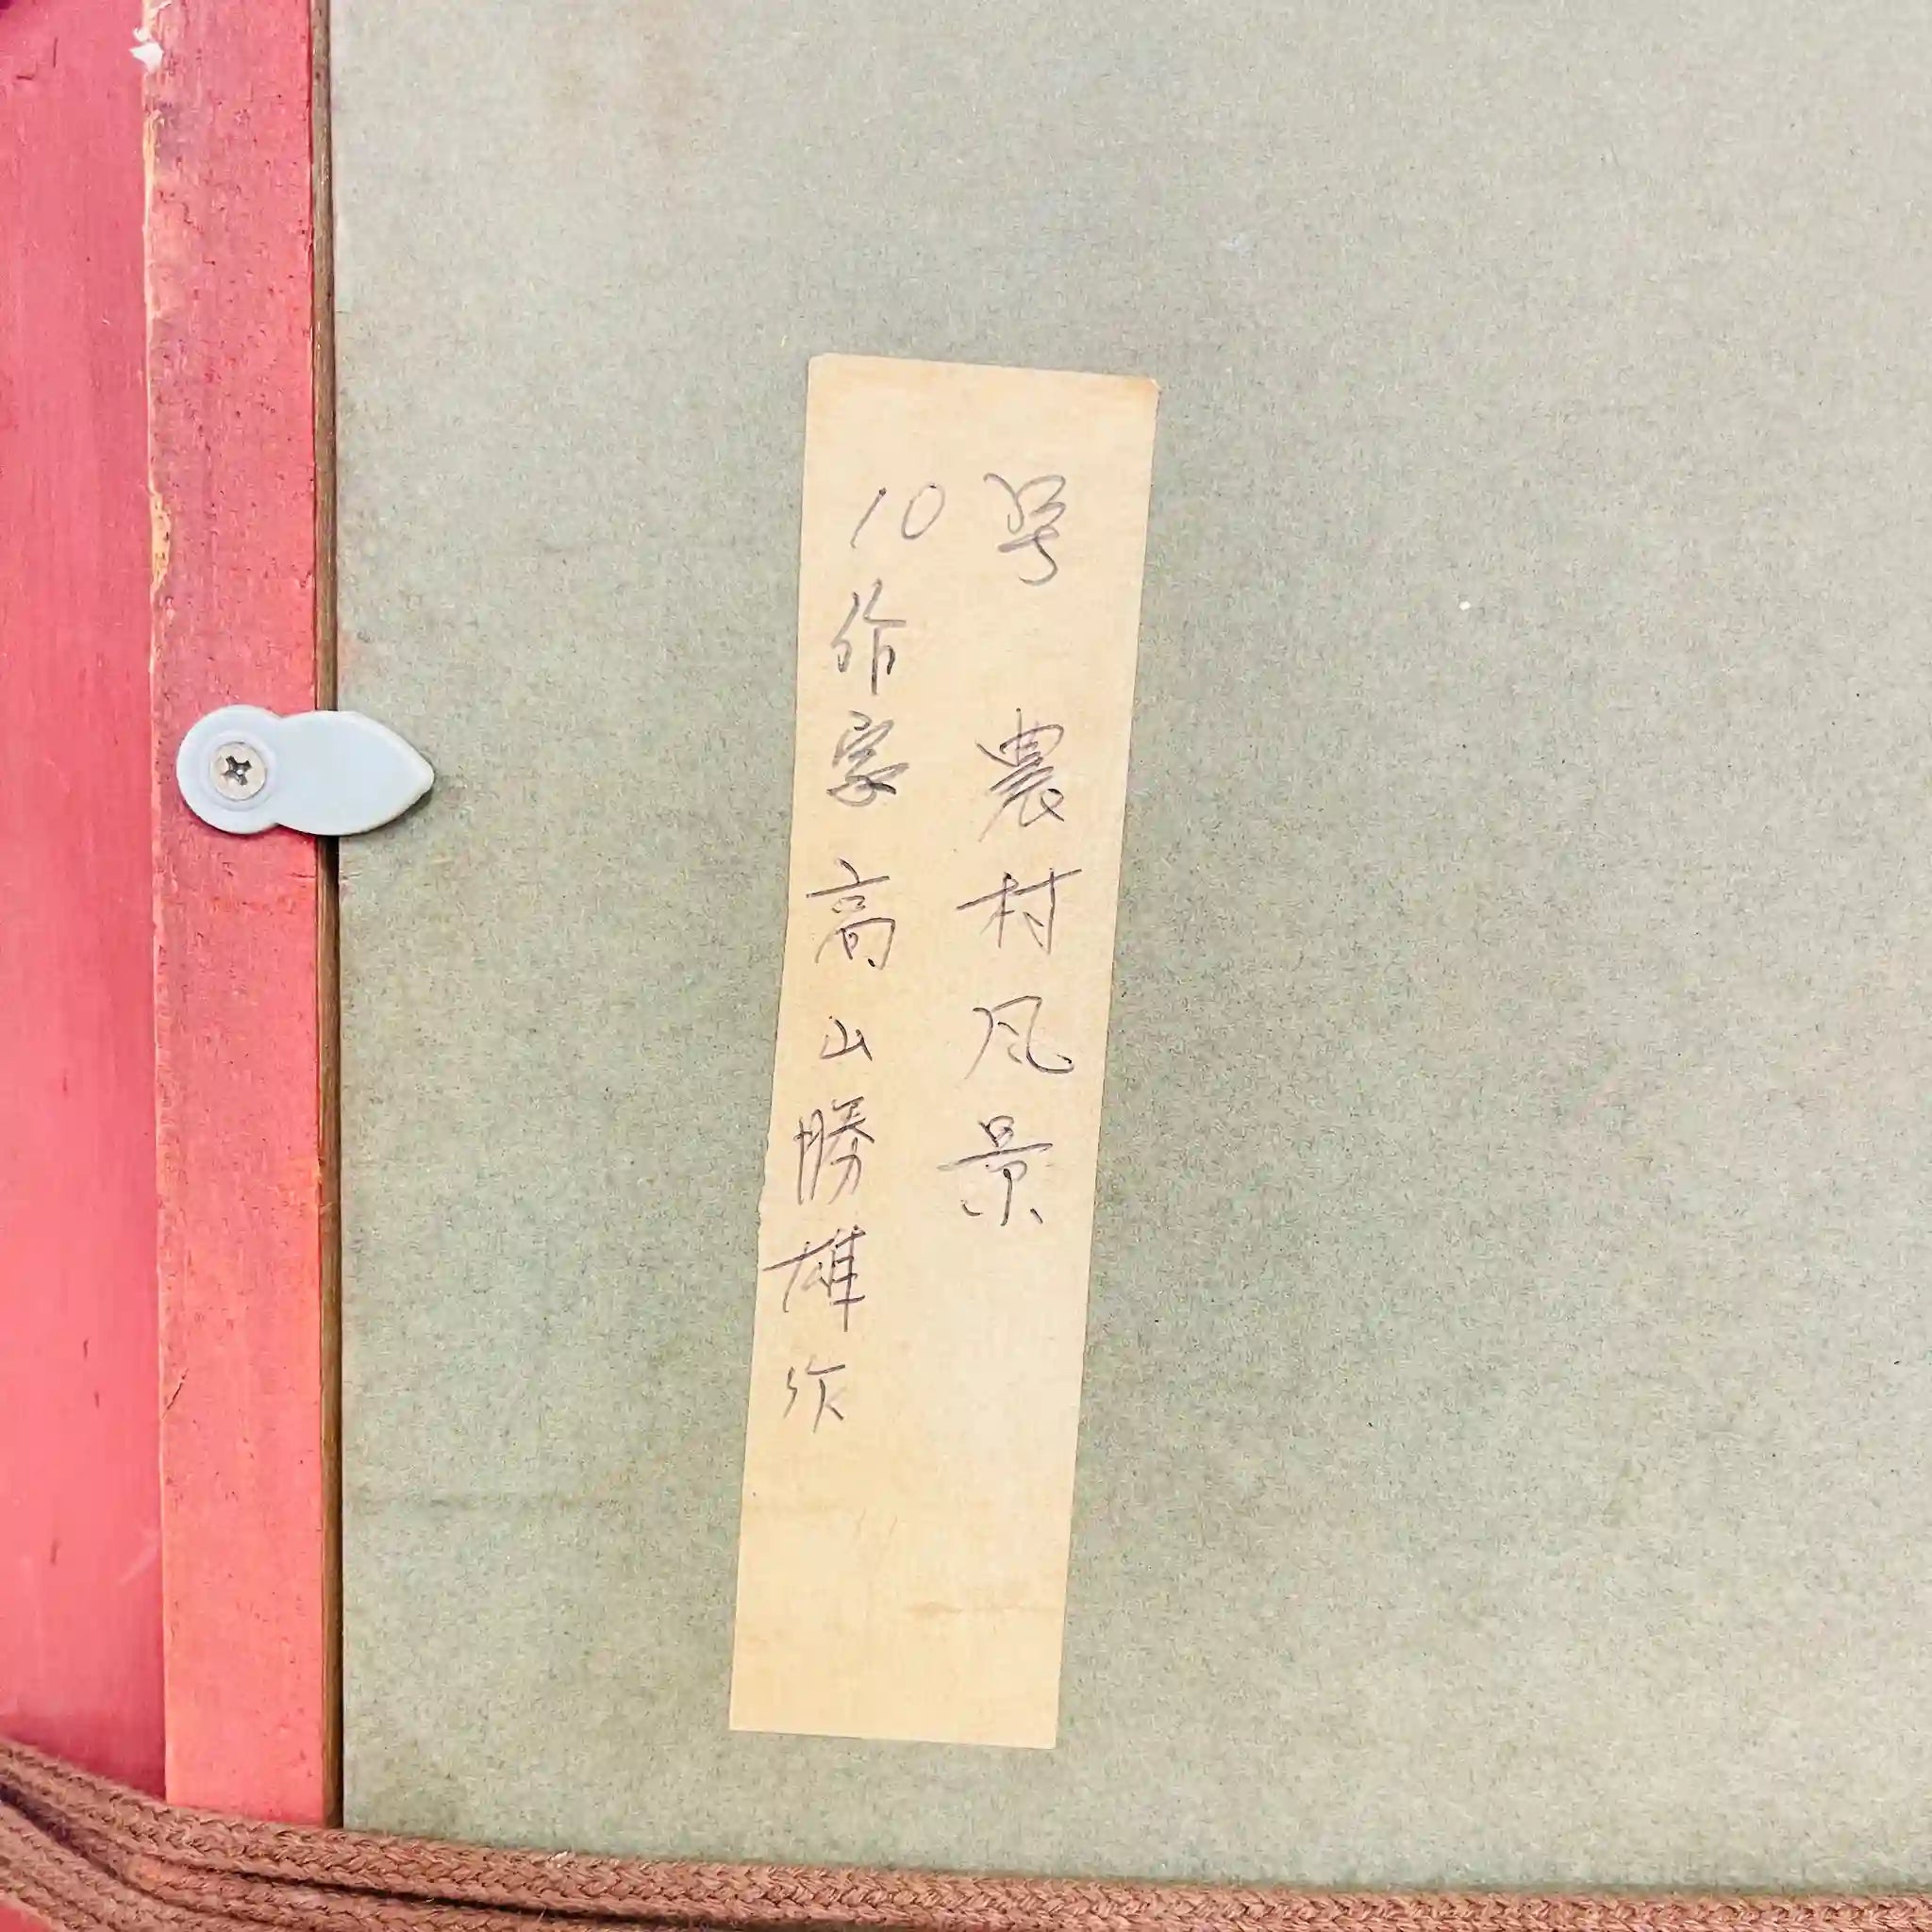 号 農村风景
10 作家 高山勝雄作